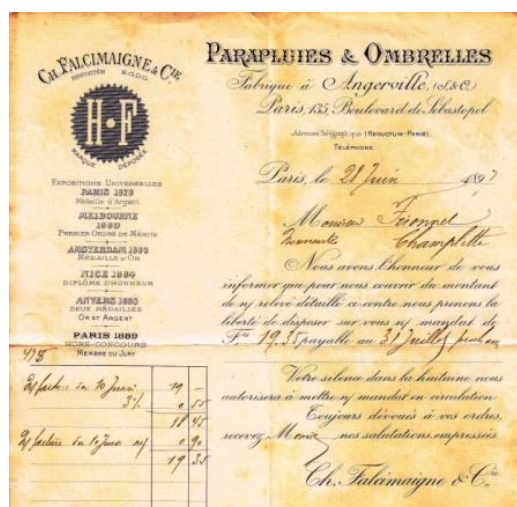 CH. FALCIMAIGNE & CIE
BREVETÉS S.G.D.G.
H·F
MARQUE DÉPOSÉE
EXPOSITIONS UNIVERSELLES
PARIS 1878
Médaille d'Argent
MELBOURNE
1880
PREMIER ORDRE DE MÉRITE
AMSTERDAM 1883
MÉDAILLE D'OR
NICE 1884
DIPLÔME D'HONNEUR
ANVERS 1885
DEUX MÉDAILLES
OR ET ARGENT
PARIS 1889
HORS-CONCOURS
MEMBRE DU JURY
PARAPLUIES & OMBRELLES
Fabrique à Angerville, (S.&O.)
Paris, 135, Boulevard de Sébastopol
Adresse Télégraphique
TÉLÉPHONE
Paris, le 28 Juin 1897
Monsieur
Champlitte
Nous avons l'honneur de vous
informer que pour nous couvrir du montant
de n/ relevé détaillé ci-contre nous prenons la
liberté de disposer sur vous n/ mandat de
Fcs 19.35 payable au 31 Juillet prochain
Votre silence dans la huitaine nous
autorisera à mettre n/ mandat en circulation
Toujours dévoués à vos ordres,
recevez, M nos salutations empressées
Ch. Falcimaigne & Cie
du 10 Juin 19 –
3% 0 55
18 45
facture du 10 Juin 0 90
19 35